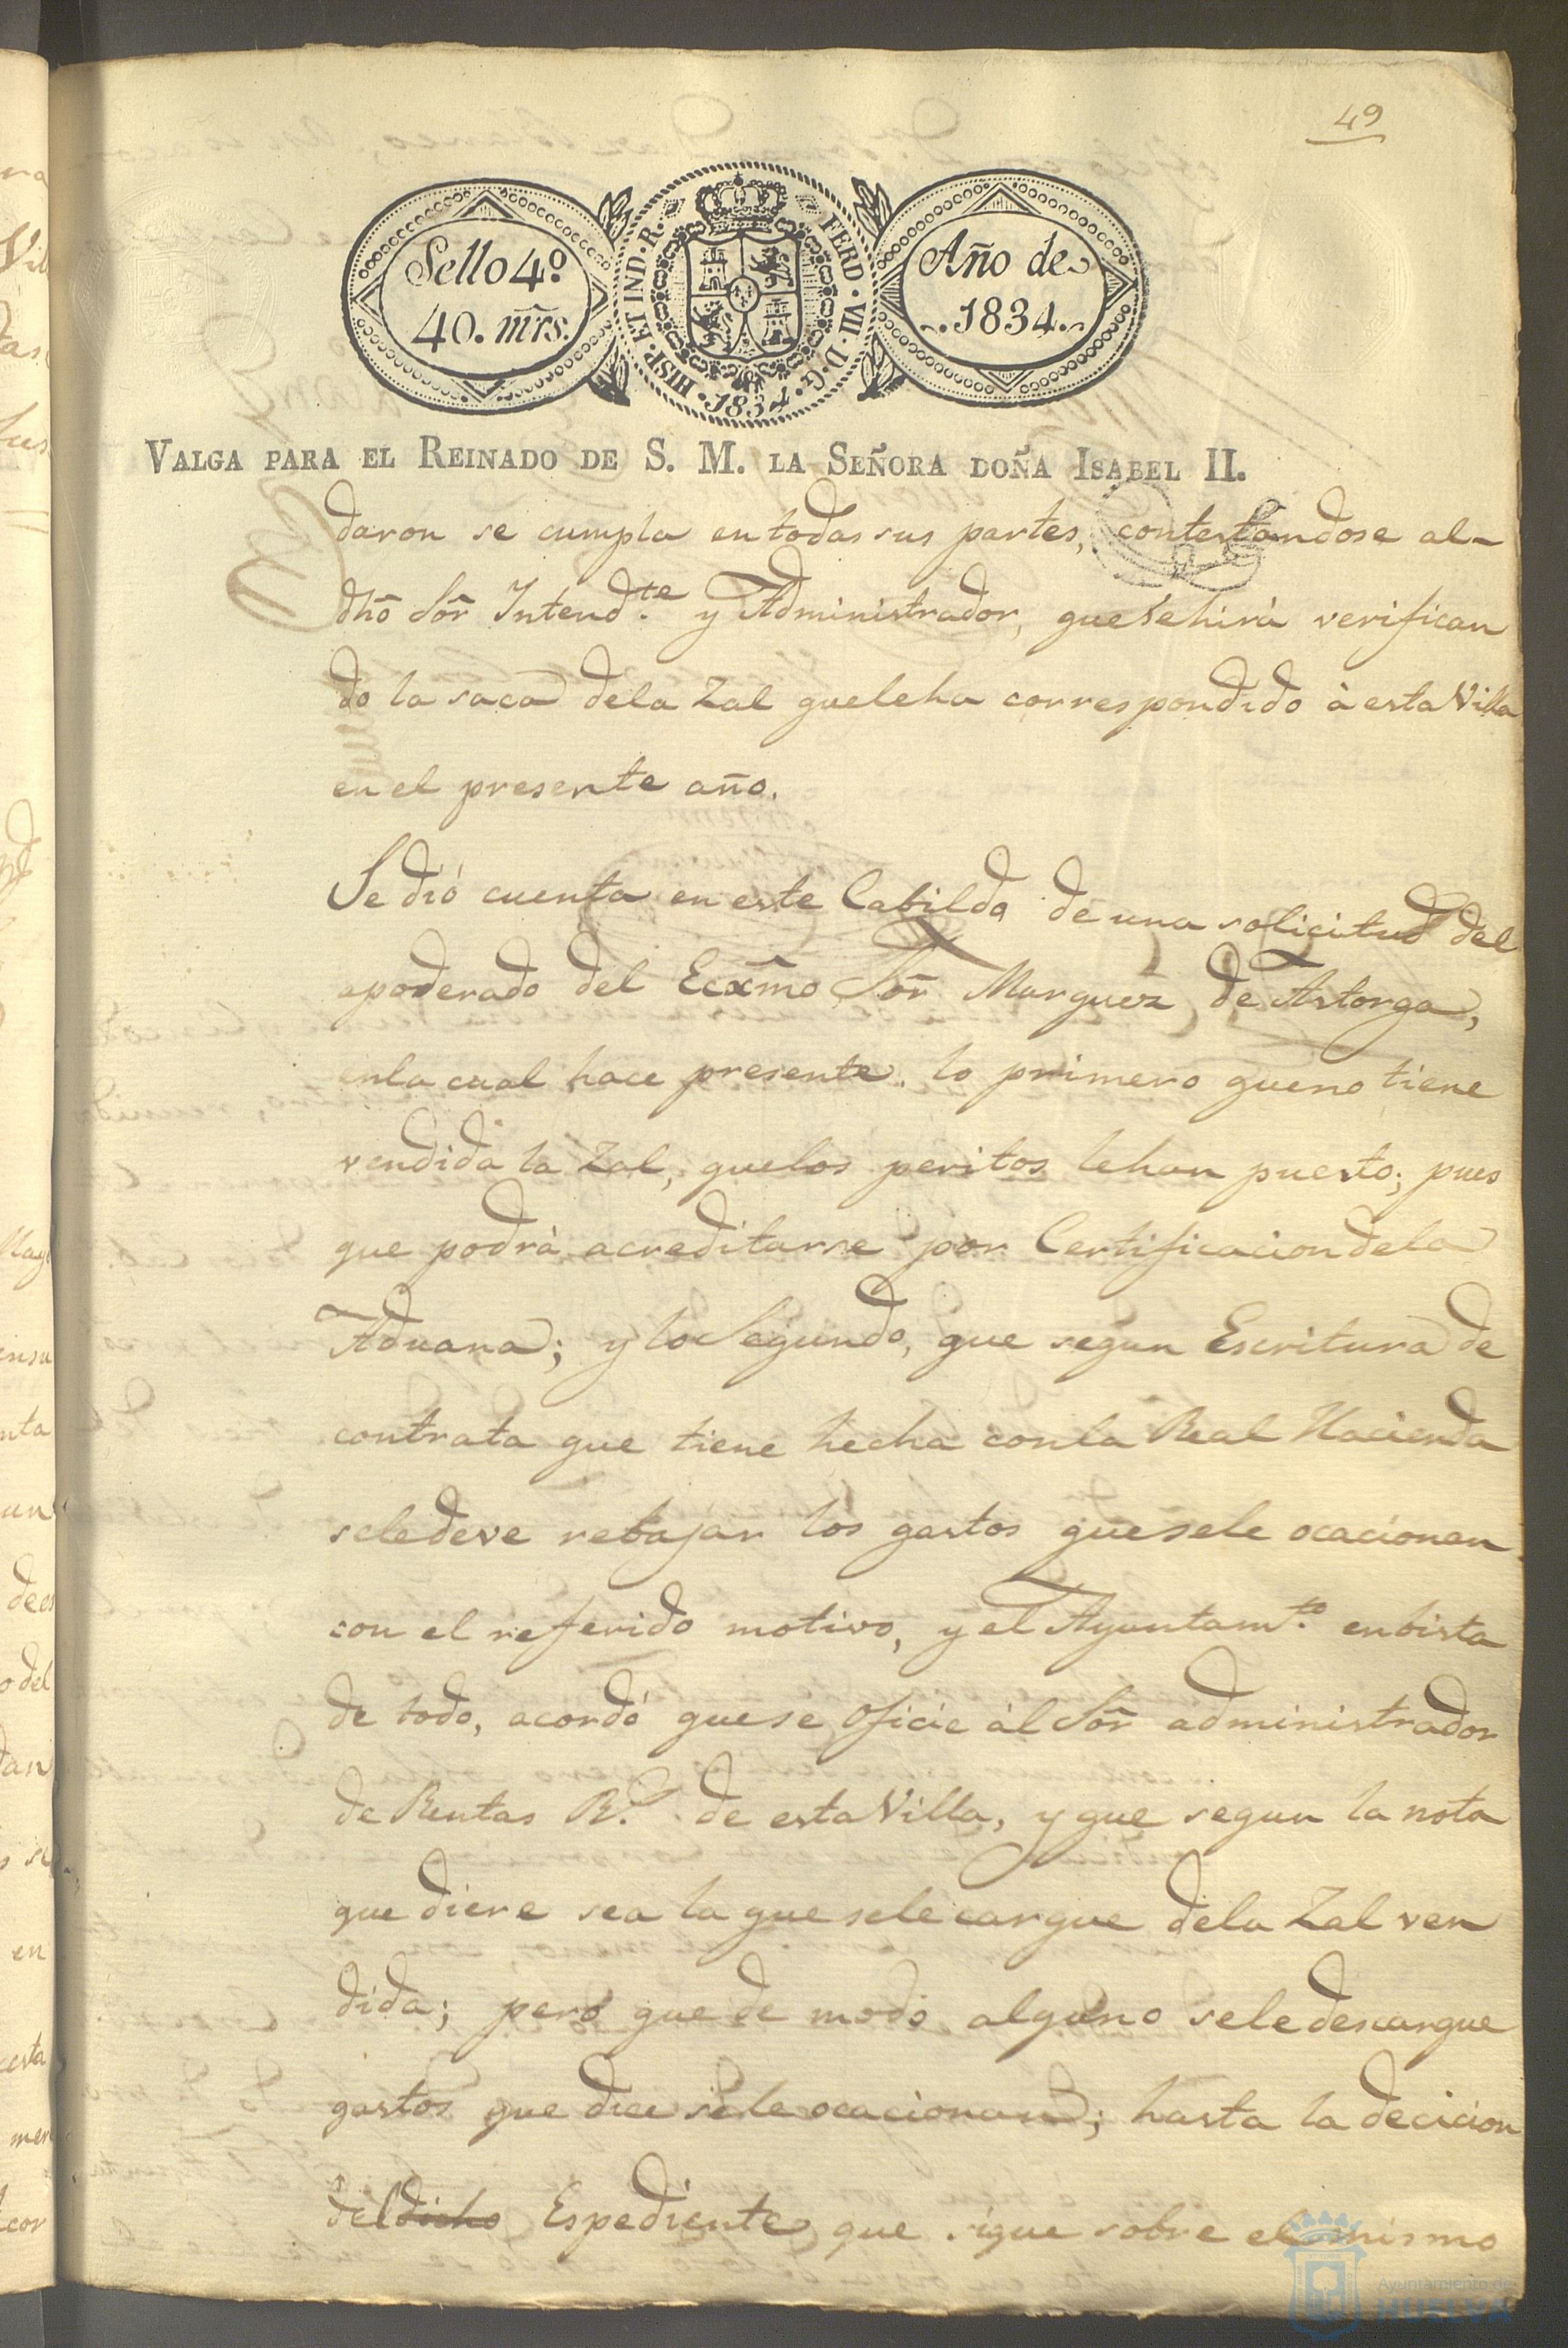 49
Sello 4º
40. mrs.
HISP. ET IND. R. FERD. VII. D. G. 1834.
Año de
1834.
VALGA PARA EL REINADO DE S. M. LA SEÑORA DOÑA ISABEL II.
daron se cumpla en todas sus partes, contestandose al-
dhõ Sõr Intendte. y Administrador, que se hirà verifican
do la saca dela Zal queleha correspondido à esta Villa
en el presente año.
Se diò cuenta en este Cabildo de una solicitud del
apoderado del Ecxm̃o Sõr Marquez de Astorga,
enla cual hace presente. lo primero queno tiene
vendida la Zal, quelos peritos lehan puesto; pues
que podrà acreditarse por Certificacion dela
Aduana; y lo Segundo, que segun Escritura de
contrata que tiene hecha conla Real Hacienda
seledeve rebajar los gastos quesele ocacionen
con el referido motivo, y el Ayuntamto. enbista
de todo, acordó quese oficie àl Sõr administrador
de Rentas Rs. de esta Villa, y que segun la nota
que diere sea la que sele cargue dela Zal ven
dida; pero que de modo alguno sele descargue
gastos que dice sele ocacionan; hasta la decicion
del dicho Espediente que sigue sobre el mismo
Ayuntamiento de
HUELVA